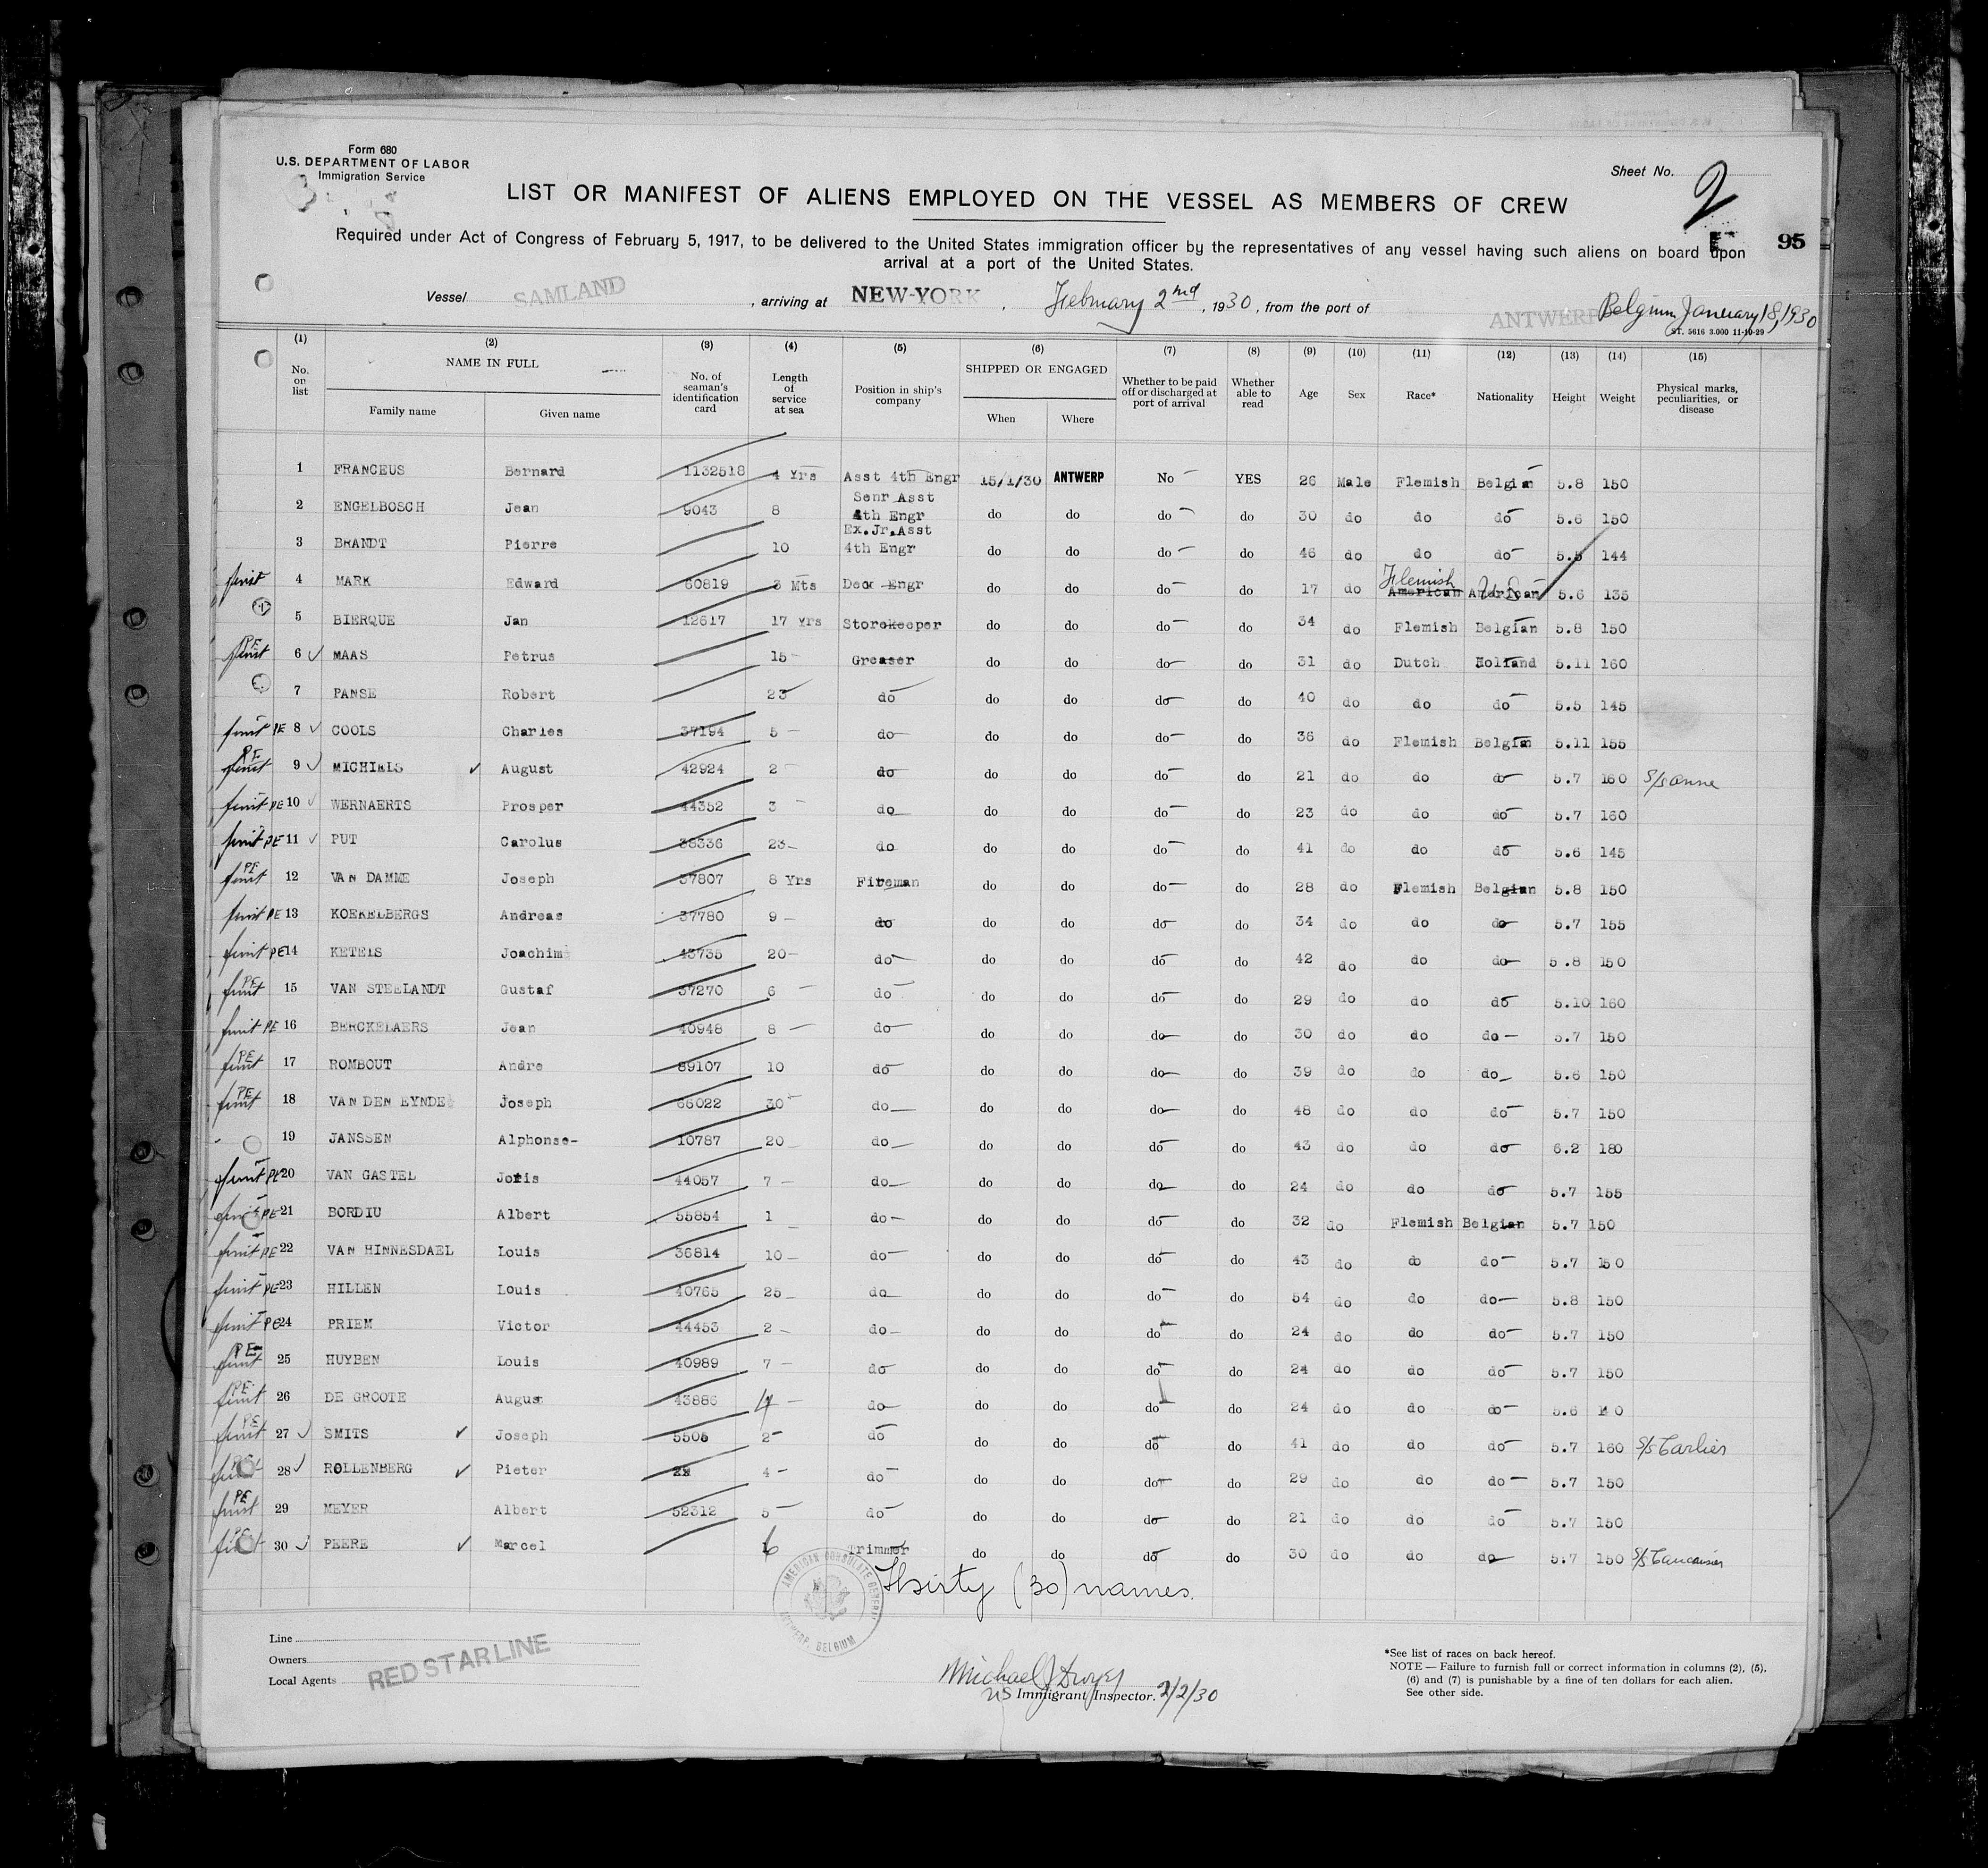 Form 680
U.S. DEPARTMENT OF LABOR
Immigration Service
Sheet No. 2
LIST OR MANIFEST OF ALIENS EMPLOYED ON THE VESSEL AS MEMBERS OF CREW
95
Required under Act of Congress of February 5, 1917, to be delivered to the United States immigration officer by the representatives of any vessel having such aliens on board upon
arrival at a port of the United States.
Vessel SAMLAND, arriving at NEW-YORK, February 2nd, 1930, from the port of ANTWERP Belgium January 18, 1930
ST. 5616 3.000 11-10-29
(1) (2) (3) (4) (5) (6) (7) (8) (9) (10) (11) (12) (13) (14) (15)
No. on list NAME IN FULL Family name Given name No. of seaman's identification card Length of service at sea Position in ship's company SHIPPED OR ENGAGED When Where Whether to be paid off or discharged at port of arrival Whether able to read Age Sex Race* Nationality Height Weight Physical marks, peculiarities, or disease
1 FRANCEUS Bernard 1132518 4 Yrs Asst 4th Engr 15/1/30 ANTWERP No YES 26 Male Flemish Belgian 5.8 150
2 ENGELBOSCH Jean 9043 8 Senr Asst 4th Engr do do do do 30 do do do 5.6 150
3 BRANDT Pierre 10 Ex.Jr.Asst 4th Engr do do do do 46 do do do 5.5 144
4 MARK Edward 60819 3 Mts Deck Engr do do do do 17 do Flemish American American U.S. 5.6 135
5 BIERQUE Jan 12617 17 Yrs Storekeeper do do do do 34 do Flemish Belgian 5.8 150
PE 6 MAAS Petrus 15 Greaser do do do do 31 do Dutch Holland 5.11 160
7 PANSE Robert 23 do do do do do 40 do do do 5.5 145
PE 8 COOLS Charles 37194 5 do do do do do 36 do Flemish Belgian 5.11 155
PE 9 MICHIELS August 42924 2 do do do do do 21 do do do 5.7 160
PE 10 WERNAERTS Prosper 44352 3 do do do do do 23 do do do 5.7 160
PE 11 PUT Carolus 38336 23 do do do do do 41 do do do 5.6 145
PE 12 VAN DAMME Joseph 37807 8 Yrs Fireman do do do do 28 do Flemish Belgian 5.8 150
PE 13 KOEKELBERGS Andreas 37780 9 do do do do do 34 do do do 5.7 155
PE 14 KETELS Joachim 43735 20 do do do do do 42 do do do 5.8 150
PE 15 VAN STEELANDT Gustaf 37270 6 do do do do do 29 do do do 5.10 160
PE 16 BERCKELAERS Jean 40948 8 do do do do do 30 do do do 5.7 150
PE 17 ROMBOUT Andre 89107 10 do do do do do 39 do do do 5.6 150
PE 18 VAN DEN EYNDE Joseph 66022 30 do do do do do 48 do do do 5.7 150
19 JANSSEN Alphonse- 10787 20 do do do do do 43 do do do 6.2 180
PE 20 VAN GASTEL Joris 44057 7 do do do do do 24 do do do 5.7 155
PE 21 BORDIU Albert 55854 1 do do do do do 32 do Flemish Belgian 5.7 150
PE 22 VAN HINNESDAEL Louis 36814 10 do do do do do 43 do do do 5.7 150
PE 23 HILLEN Louis 40765 25 do do do do do 54 do do do 5.8 150
PE 24 PRIEM Victor 44453 2 do do do do do 24 do do do 5.7 150
PE 25 HUYBEN Louis 40989 7 do do do do do 24 do do do 5.7 150
PE 26 DE GROOTE August 43886 do do do do do 24 do do do 5.6
PE 27 SMITS Joseph 5505 2 do do do do do 41 do do do 5.7 160 S/S Carlier
28 ROLLENBERG Pieter 4 do do do do do 29 do do do 5.7 150
PE 29 MEYER Albert 52312 5 do do do do do 21 do do do 5.7 150
PE 30 PEERE Marcel 6 Trimmer do do do do 30 do do do 5.7 150 S/S Caucasier
Thirty (30) names.
AMERICAN CONSULATE GENERAL ANTWERP, BELGIUM
Line
Owners
Local Agents
RED STAR LINE
Michael J Dwyer
US Immigrant Inspector. 2/2/30
*See list of races on back hereof.
NOTE — Failure to furnish full or correct information in columns (2), (5),
(6) and (7) is punishable by a fine of ten dollars for each alien.
See other side.